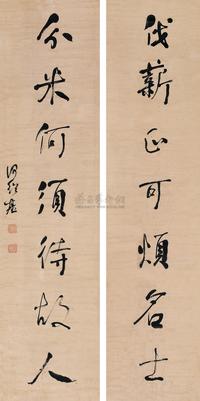 伐薪正可煩名士
分米何須待故人
何紹基